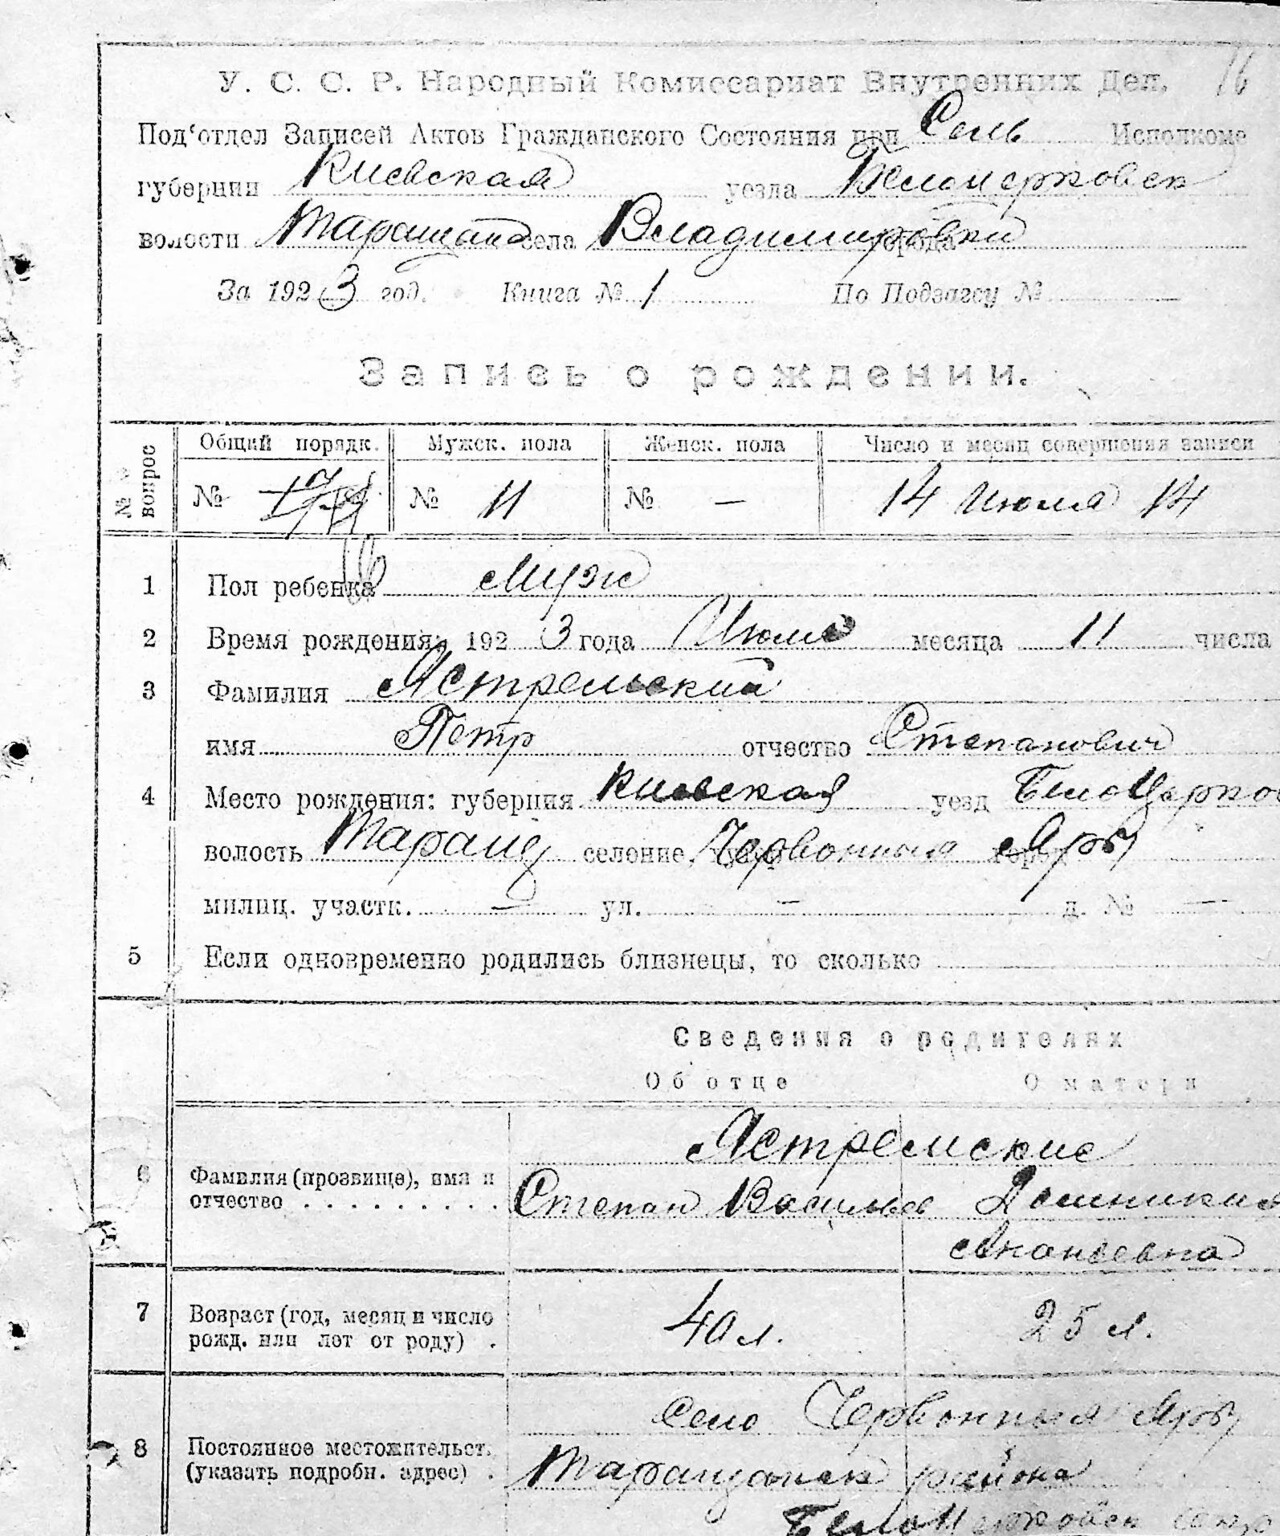 16
У. С. С. Р. Народный Комиссариат Внутренних Дел.
Под'отдел Записей Актов Гражданского Состояния при Сель Исполкоме
губернии Киевская уезда Белоцерковск
волости Таращан села Владимировки города
За 1923 год. Книга № 1 По Подзагсу №
Запись о рождении.
№ вопрос Общий порядк. Мужск. пола Женск. пола Число и месяц совершения записи
№ № 11 № — 14 Июля 14
16
1 Пол ребенка Муж
2 Время рождения: 1923 года Июля месяца 11 числа
3 Фамилия Ястремский
имя Петр отчество Степанович
4 Место рождения: губерния Киевская уезд БелоЦерков
волость Таращ селение, Червонныя Яры
милиц. участк. — ул. — д. № —
5 Если одновременно родились близнецы, то сколько
Сведения о родителях
Об отце О матери
Ястремские
6 Фамилия (прозвище), имя и
отчество . . . . . . . . . Степан Васильев Домникия
Ананьевна
7 Возраст (год, месяц и число
рожд. или лет от роду) . 40 л. 25 л.
село Червонныя Яры
8 Постоянное местожительст.
(указать подробн. адрес) . Таращанск района
БелоЦерковск